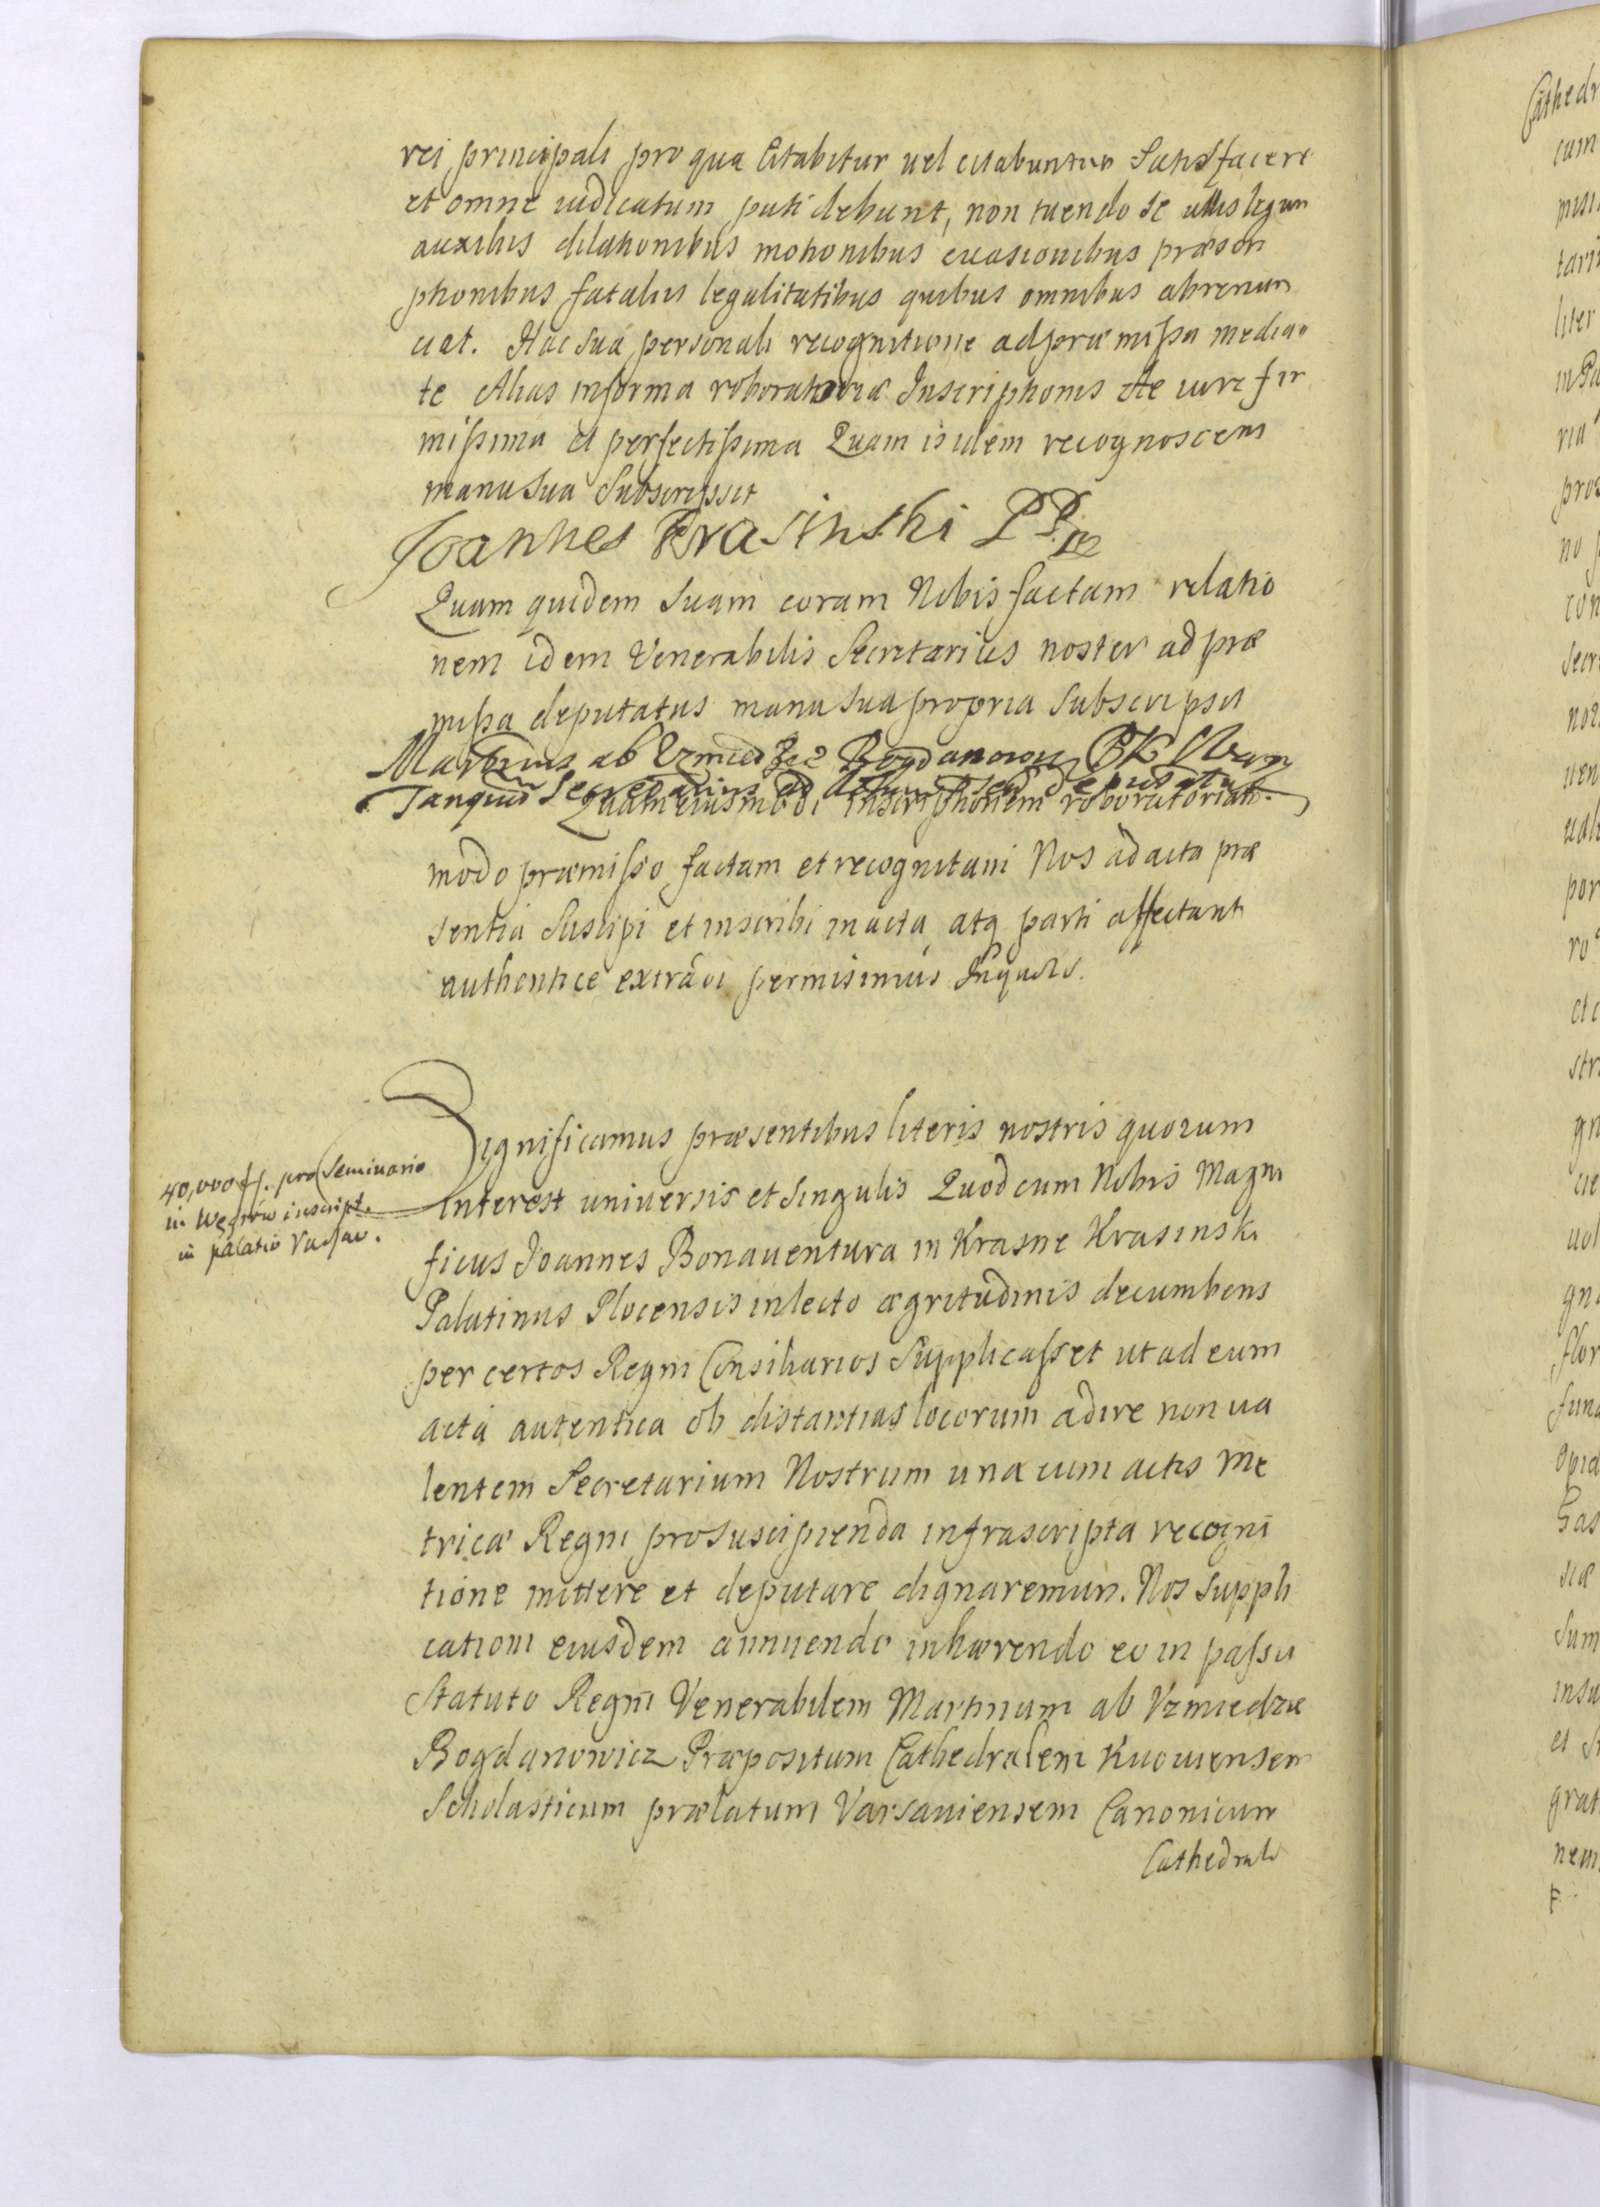 rei principali pro qua Citabitur uel citabuntur Satisfacere
et omne iudicatum pati debunt, non tuendo se ullis legum
auxiliis dilationibus motionibus euasionibus præscri
ptionibus fatalius legalitatibus quibus omnibus abrenun
ciat. Hac sua personali recognitione ad præmissa median
te Alias in forma roboratoriæ Inscriptionis de iure fir
missima et perfectissima Quam is idem recognoscens
manu sua Subscripsit
Joannes Krasinski PP
Quam quidem suam coram Nobis factam relatio
nem idem Venerabilis Secretarius noster ad præ
missa deputatus manu sua propria subscripsit
Martinus ab Vzmiedze Bogdanowicz PK
Tanquam Secretarius ad deputatus
Quam eiusmodi inscriptionem roboratoriam
modo præmisso factam et recognitam Nos ad acta præ
sentia Suscipi et inscribi in acta, atq parti affectanti
authentice extradi permisimus Inquor.
Significamus præsentibus literis nostris quorum
interest uniuersis et singulis Quod cum Nobis Magni
ficus Joannes Bonauentura in Krasne Krasinski
Palatinus Plocensis in lecto ægritudinis decumbens
per certos Regni Consiliarios Supplicasset ut ad eum
acta autentica ob distantias locorum adire non ua
lentem Secretarium Nostrum una cum actis Me
tricæ Regni pro suscipienda infrascripta recogni
tione mittere et deputare dignaremur. Nos suppli
cationi eiusdem annuendo inhærendo eo in passu
Statuto Regni Venerabilem Martinum ab Vzmiedze
Bogdanowicz Præpositum Cathedralem Kiiouiensem
Scholasticum prælatum Varsauiensem Canonicum
Cathedrale
40,000 fl. pro Seminario
in Węgrów inscript.
in palatio Varsav.